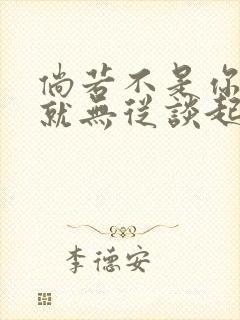 倘若不是你
就無從談起
李德安